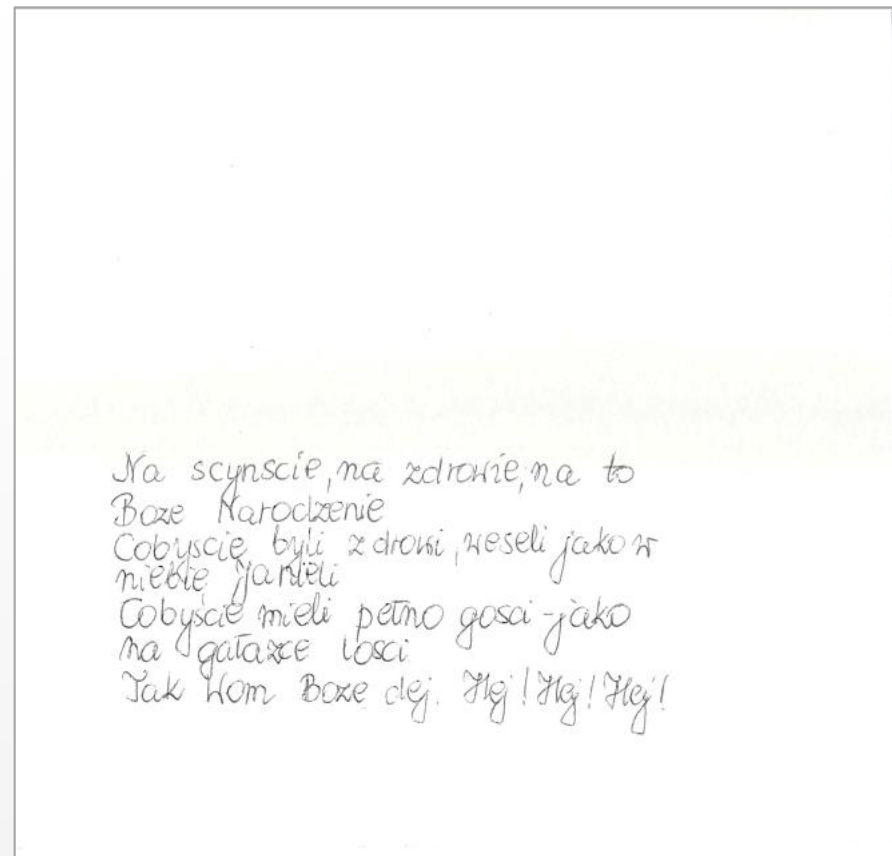 Na scynscie, na zdrowie, na to
Boze Narodzenie
Cobyscie byli zdrowi, weseli jako w
niebie janieli
Cobyście mieli pełno gosci - jako
na gałazce losci
Tak Wom Boze dej. Hej! Hej! Hej!